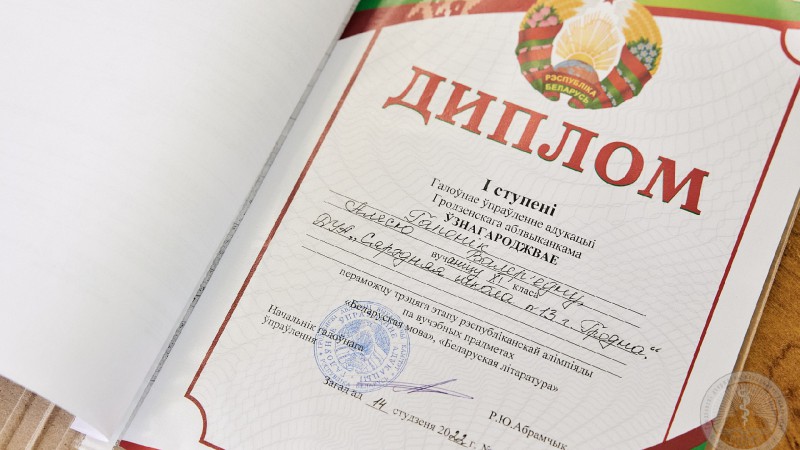 РЭСПУБЛІКА
БЕЛАРУСЬ
ДИПЛОМ
І ступені
Галоўнае ўпраўленне адукацыі
Гродзенскага аблвыканкама
ЎЗНАГАРОДЖВАЕ
Гапенік
Алесю Валер'еўну,
вучаніцу 8 класа
ДУА „Сярэдняя школа п 13 г. Гродна."
пераможцу трэцяга этапу рэспубліканскай алімпіяды
па вучэбных прадметах
«Беларуская мова», «Беларуская літаратура»
Начальнік галоўнага
ўпраўлення
Р.Ю.Абрамчык
Загад ад 14 студзеня 2022 г. №